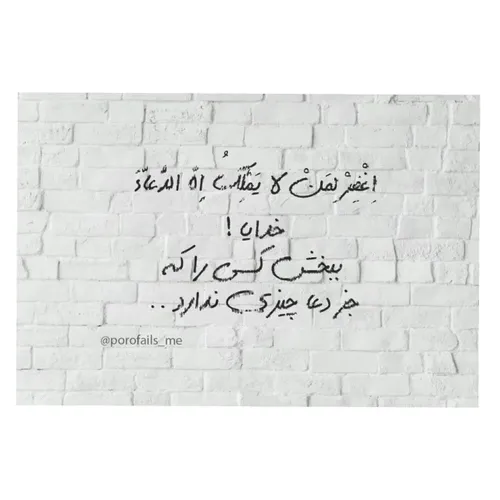 اِغْفِرْ لِمَنْ لا يَمْلِكُ اِلّا الدُّعاَّءَ
خدایا !
ببخش کسی را که
جز دعا چیزی ندارد..
@porofails_me